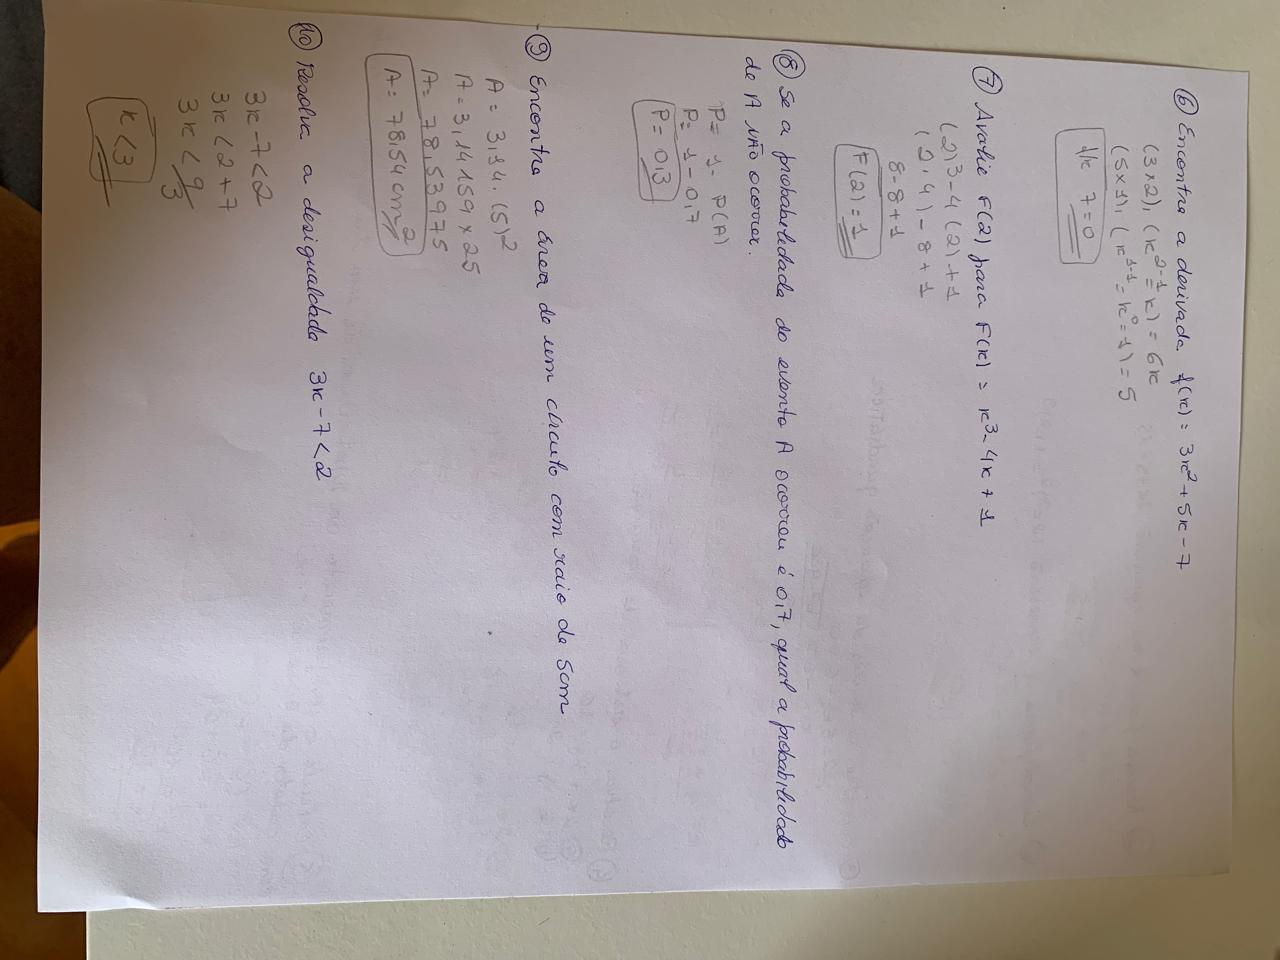 6 Encontre a derivada f(x) = 3x² + 5x - 7
(3×2), (x²⁻¹ = x) = 6x
(5×1), (x¹⁻¹ = x⁰ = 1) = 5
7 = 0
7 Avalie F(2) para F(x) = x³ - 4x + 1
(2)³ - 4 (2) + 1
(2.4) - 8 + 1
8 - 8 + 1
F(2) = 1
8 Se a probabilidade do evento A ocorreu é 0,7, qual a probabilidade
de A NÃO ocorrer.
P = 1 - P(A)
P = 1 - 0,7
P = 0,3
9 Encontre a área de um círculo com raio de 5cm
A = 3,14. (5)²
A = 3,14159 × 25
A = 78,53975
A = 78,54 cm²
10 Resolva a desigualdade 3x - 7 < 2
3x - 7 < 2
3x < 2 + 7
3x < 9/3
x < 3